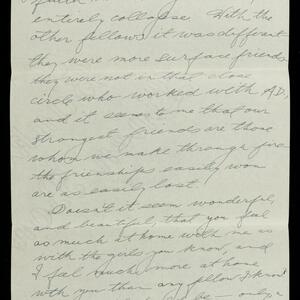 entirely collapse. With the
other fellows it was different
they were more surface friends
they were not in that close
circle who worked with A.D.,
and it seems to me that our
strongest friends are those
whom we make through fire
the frienships easily won
are as easily lost.
Doesn't it seem wonderful,
and beautiful, that you feal
as much at home with me as
with the girls you know, and
I feal much more at home
with you than any fellow I know
be — only a